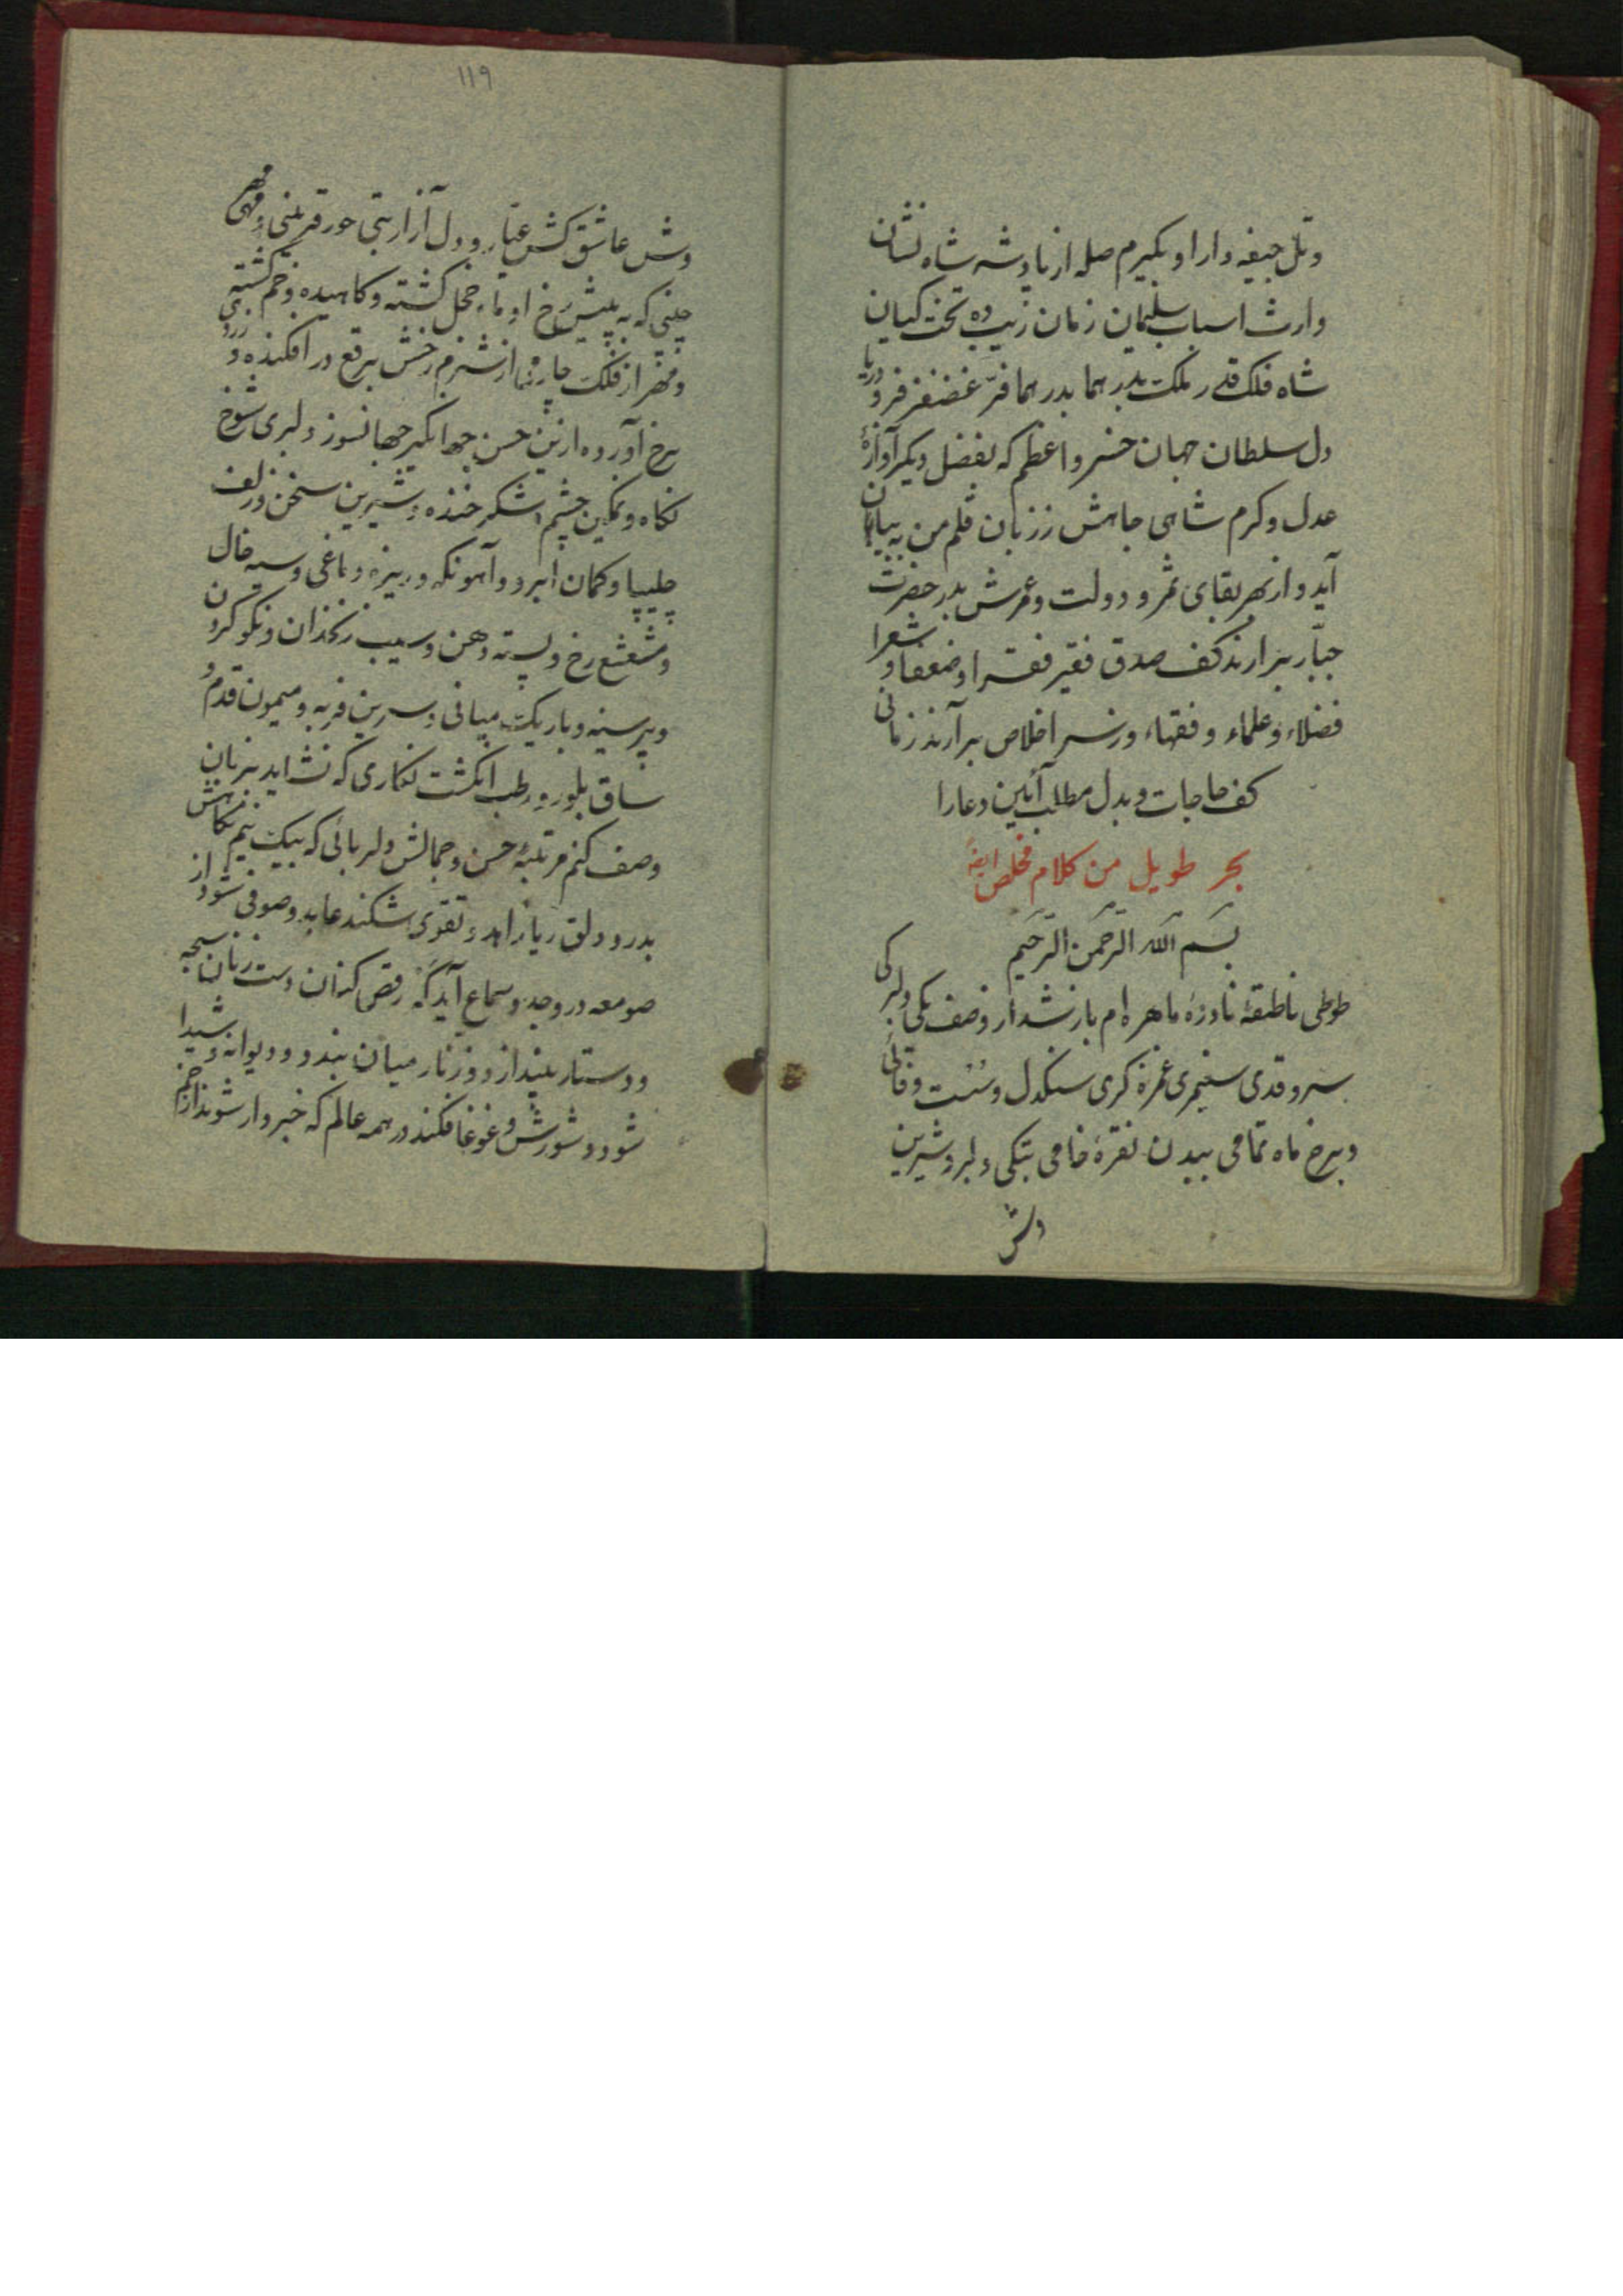 و تل جیغه دارا و بگیرم صله از پادشه شاه نشان
وارث اسباب سلیمان زمان زیب ده تخت کیان
شاه فلک قدر ملک بدر هما بدر هما فرّ غضنفر فر و دریا
دل سلطان جهان خسرو اعظم که بفضل دیگر آوازهٔ
عدل و کرم شاهی جاهش ز زبان قلم من به بیان
آید و از بهر بقای ثمر و دولت و عمرش بدر حضرت
جبّار برارند کف صدق فقیر فقرا و ضعفا و شعرا
فضلاء و علماء و فقهاء و ز سر اخلاص برآرند زمانی
کف حاجات و بدل مطلب آئین دعا را
بحر طویل من کلام مخلص ایضاً
بسم الله الرحمن الرحیم
طوطی ناطقهٔ نادرهٔ ماهره ام باز شد از وصف یکی دلبرکی
سرو قدی سیمبری غمزه گری سنگدل و سُست وفائی
و برخ ماه تمامی ببدن نقرهٔ خامی بتکی دلبر و شیرین
وش
۱۱۹
وش عاشق کش عیّار و دل آزار بتی حور قرینی و مهر
جبینی که به پیش رخ او ماه خجل گشته و کاهیده و خم گشته
و مهر از فلک چار نما از شرم رخش برقع در افکنده و زردی
برخ آورده ازین حسن جهانگیر جهانسوز دلبری شوخ
نگاه و نمکین چشم و شکر خنده و شیرین سخن و زلف
چلیپا و کمان ابرو و آهو نگه و بینی و باغی و سیه خال
و مشعشع رخ و پسته دهن و سیب زنخدان و نکو گردن
و بر سینه و باریک میانی و سرین فربه و میمون قدم و
ساق بلور و رطب انگشت نگاری که نشاید بزبان
وصف کنم مرتبهٔ حسن و جمالش دلربائی که بیک نیم نگاهش
بدرد دلق ریا زاهد و تقوی شکند عابد و صوفی شود از
صومعه در وجد و سماع آید گه رقص کنان دست زنان سبحه
و دستار بیندازد و زنار میان بندد و دیوانه و شیدا
شود و شورش و غوغا فکند در همه عالم که خبردار شوند از